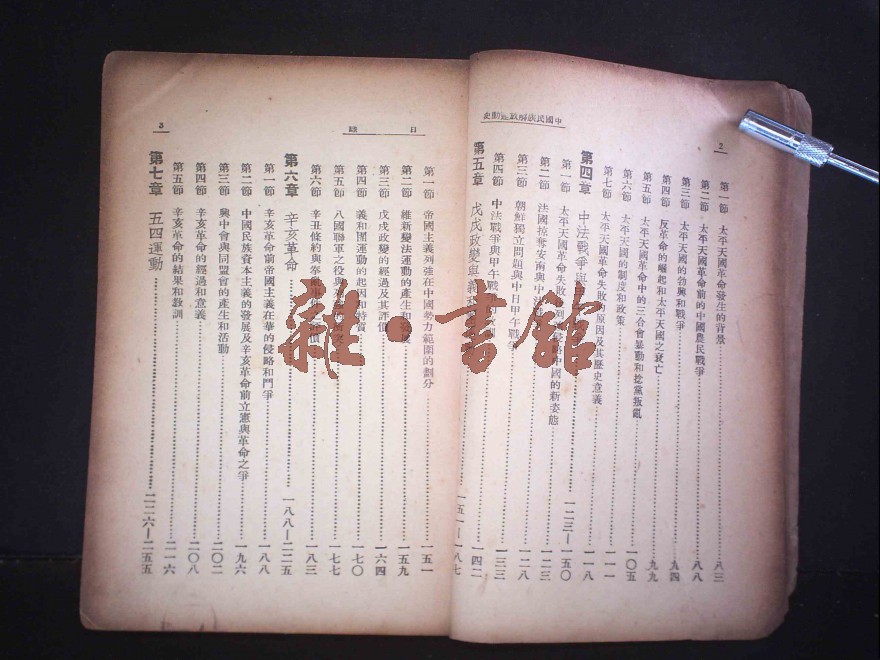 2
中國民族解放運動史
第一節 太平天國革命發生的背景……八三
第二節 太平天國革命前的中國農民戰爭……八八
第三節 太平天國的勃興和戰爭……九四
第四節 反革命的崛起和太平天國之衰亡……九九
第五節 太平天國革命中的三合會暴動和捻黨叛亂……一〇五
第六節 太平天國的制度和政策……一一一
第七節 太平天國革命失敗的原因及其歷史意義……一一八
第四章 中法戰爭與……一二三—一五〇
第一節 太平天國革命失敗 列強侵略中國的新姿態……一二三
第二節 法國掠奪安南與中法戰爭……一二八
第三節 朝鮮獨立問題與中日甲午戰爭……一三三
第四節 中法戰爭與甲午戰爭……一四二
第五章 戊戌政變與義和……一五一—一八七
目錄
3
第一節 帝國主義列強在中國勢力範圍的劃分……一五一
第二節 維新變法運動的產生和發展……一五九
第三節 戊戌政變的經過及其評價……一六四
第四節 義和團運動的起因和特質……一七〇
第五節 八國聯軍之役與……一七七
第六節 辛丑條約與……一八三
第六章 辛亥革命……一八八—二二五
第一節 辛亥革命前帝國主義在華的侵略和鬥爭……一八八
第二節 中國民族資本主義的發展及辛亥革命前立憲與革命之爭……一九六
第三節 興中會與同盟會的產生和活動……二〇二
第四節 辛亥革命的經過和意義……二〇八
第五節 辛亥革命的結果和教訓……二一六
第七章 五四運動……二二六—二五五
雜·書館